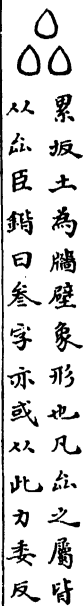 厽
累坂土為牆壁象形也凡厽之屬皆
从厽臣鍇曰叄字亦或从此力委反